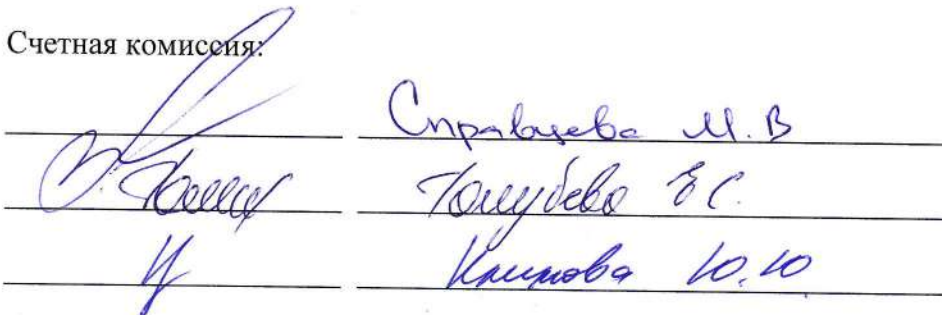 Счетная комиссия:
М. В
Голубева Е С.
Климова Ю. Ю.